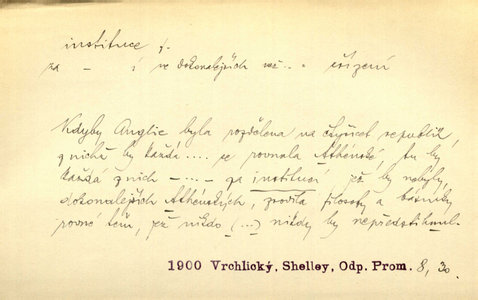 instituce f.
za – i ne dokonalejších než . . . zřízení
Kdyby Anglie byla rozdělena na čtyřicet republik,
z nichž by každá .... se rovnala Athénské, tu by
každá z nich – . – . – za institucí jež by nebyly
dokonalejších Athénských, zrodila filosofy a básníky
rovné těm, jež nikdo (...) nikdy by nepředstihnul.
1900 Vrchlický, Shelley, Odp. Prom. 8, 30.